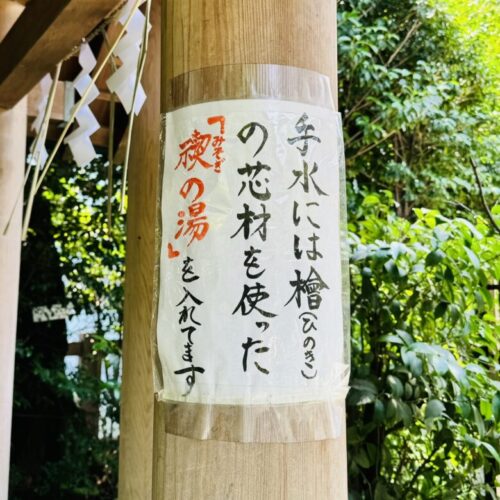 手水には檜(ひのき)
の芯材を使った
「禊の湯」を入れてます
みそぎ